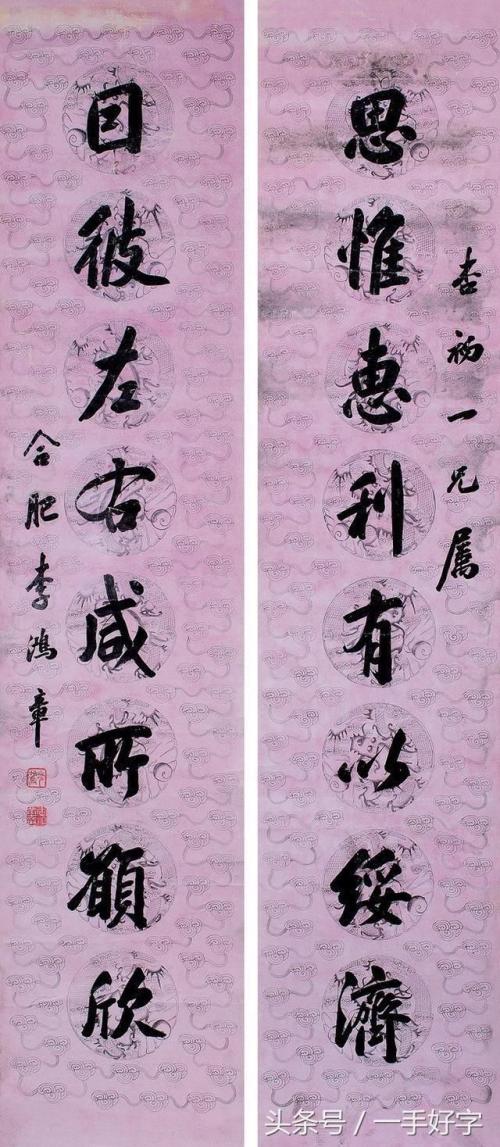 杏初一兄屬
思惟惠利有以綏濟
囙彼左右咸所願欣
合肥李鴻章
头条号/一手好字